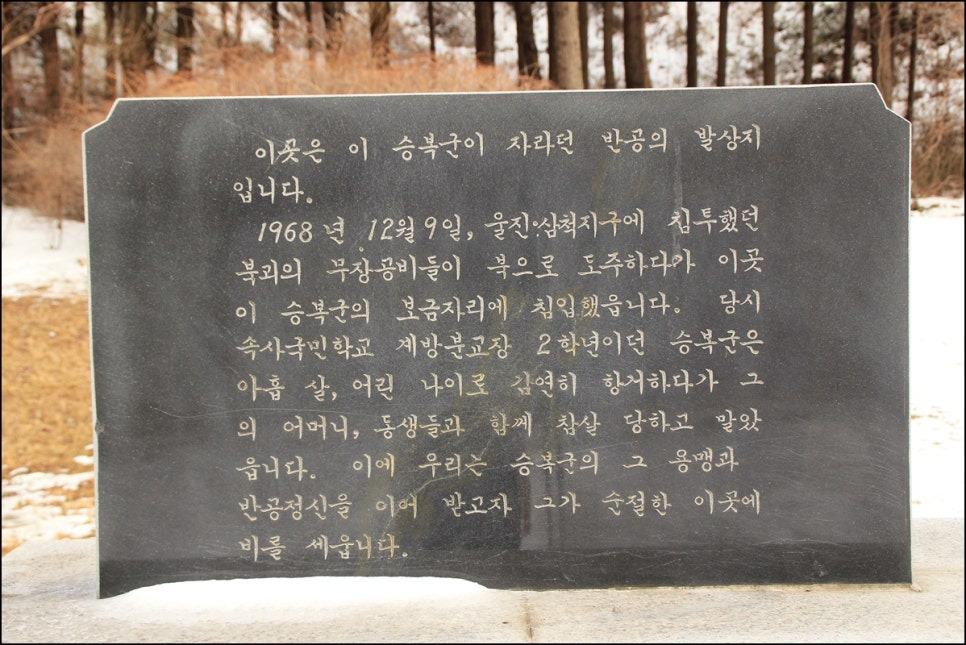 이곳은 이 승복군이 자라던 반공의 발상지
입니다.
1968년 12월 9일, 울진·삼척지구에 침투했던
북괴의 무장공비들이 북으로 도주하다가 이곳
이 승복군의 보금자리에 침입했읍니다. 당시
속사국민학교 계방분교장 2학년이던 승복군은
아홉 살, 어린 나이로 감연히 항거하다가 그
의 어머니, 동생들과 함께 참살 당하고 말았
읍니다. 이에 우리는 승복군의 그 용맹과
반공정신을 이어 받고자 그가 순절한 이곳에
비를 세웁니다.